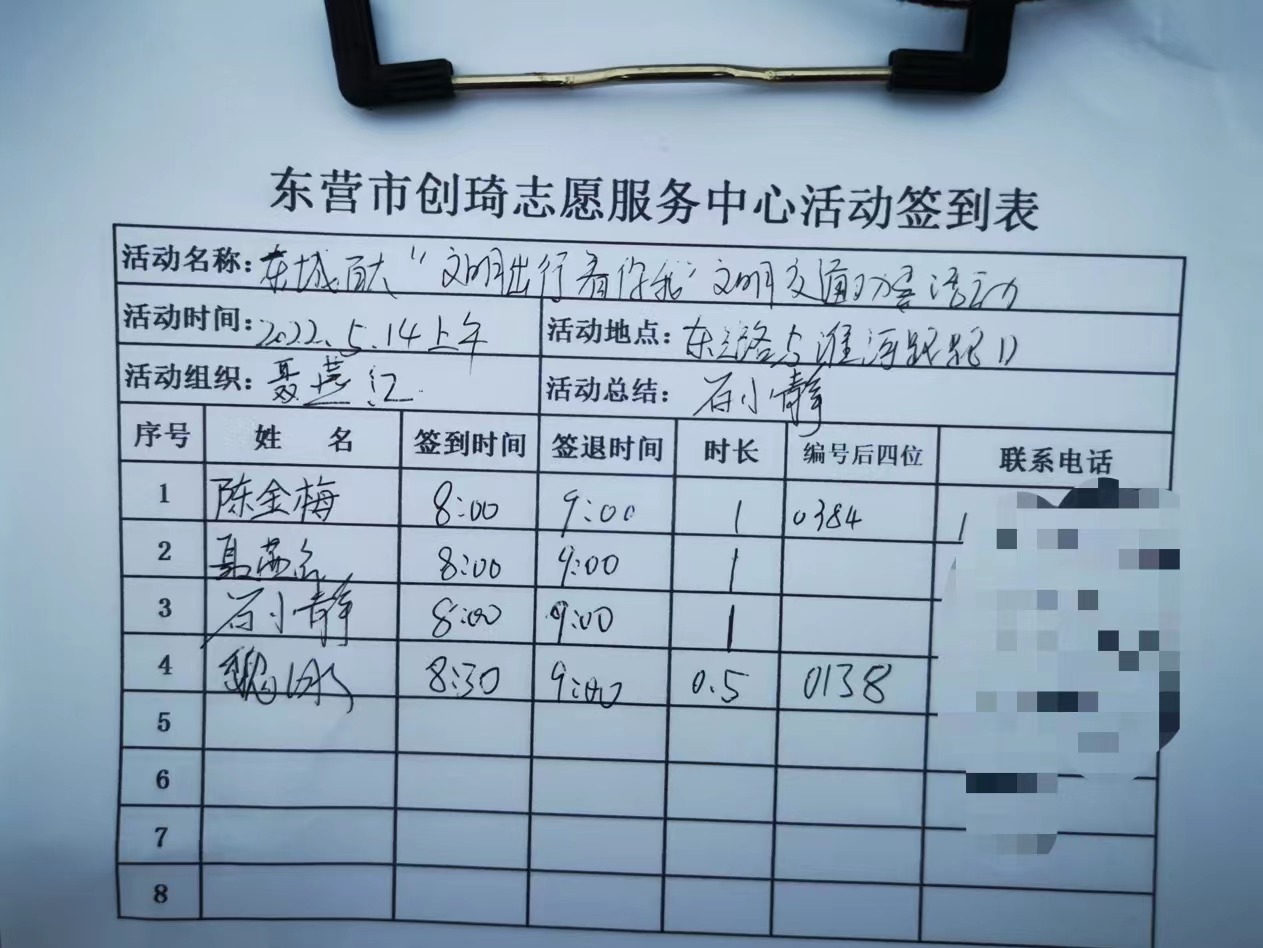 东营市创琦志愿服务中心活动签到表
活动名称：东城百大“文明出行有你我”文明交通劝导活动
活动时间：2022.5.14上午 活动地点：东三路与淮河路路口
活动组织：聂燕红 活动总结：石小静
序号 姓名 签到时间 签退时间 时长 编号后四位 联系电话
1 陈金梅 8:00 9:00 1 0384 1
2 聂燕红 8:00 9:00 1
3 石小静 8:00 9:00 1
4 魏 8:30 9:00 0.5 0138
5
6
7
8